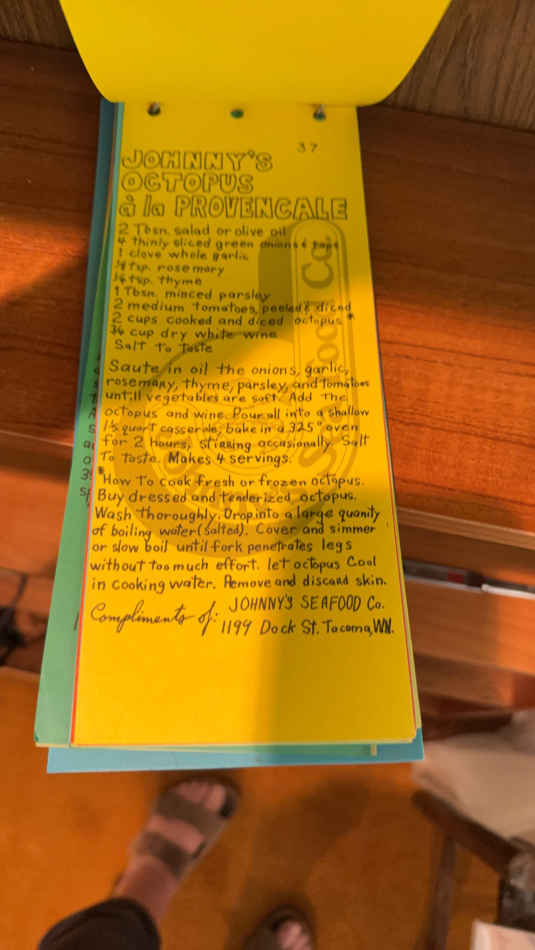 37
JOHNNY'S
OCTOPUS
à la PROVENCALE
2 Tbsn. salad or olive oil
4 thinly sliced green onions & tops
1 clove whole garlic
1/8 tsp. rosemary
1/4 tsp. thyme
1 Tbsn. minced parsley
2 medium tomatoes, peeled & diced
2 cups cooked and diced octopus *
3/4 cup dry white wine
Salt To Taste
Saute in oil the onions, garlic,
rosemary, thyme, parsley, and tomatoes
untill vegetables are soft. Add the
octopus and wine. Pour all into a shallow
1½ quart casserole; bake in a 325° oven
for 2 hours, stirring occasionally. Salt
To Taste. Makes 4 servings.
*How To cook fresh or frozen octopus.
Buy dressed and tenderized octopus.
Wash thoroughly. Drop into a large quanity
of boiling water (salted). Cover and simmer
or slow boil until fork penetrates legs
without too much effort. let octopus Cool
in cooking water. Remove and discard skin.
Compliments of: JOHNNY'S SEAFOOD Co.
1199 Dock St. Tacoma, WN.